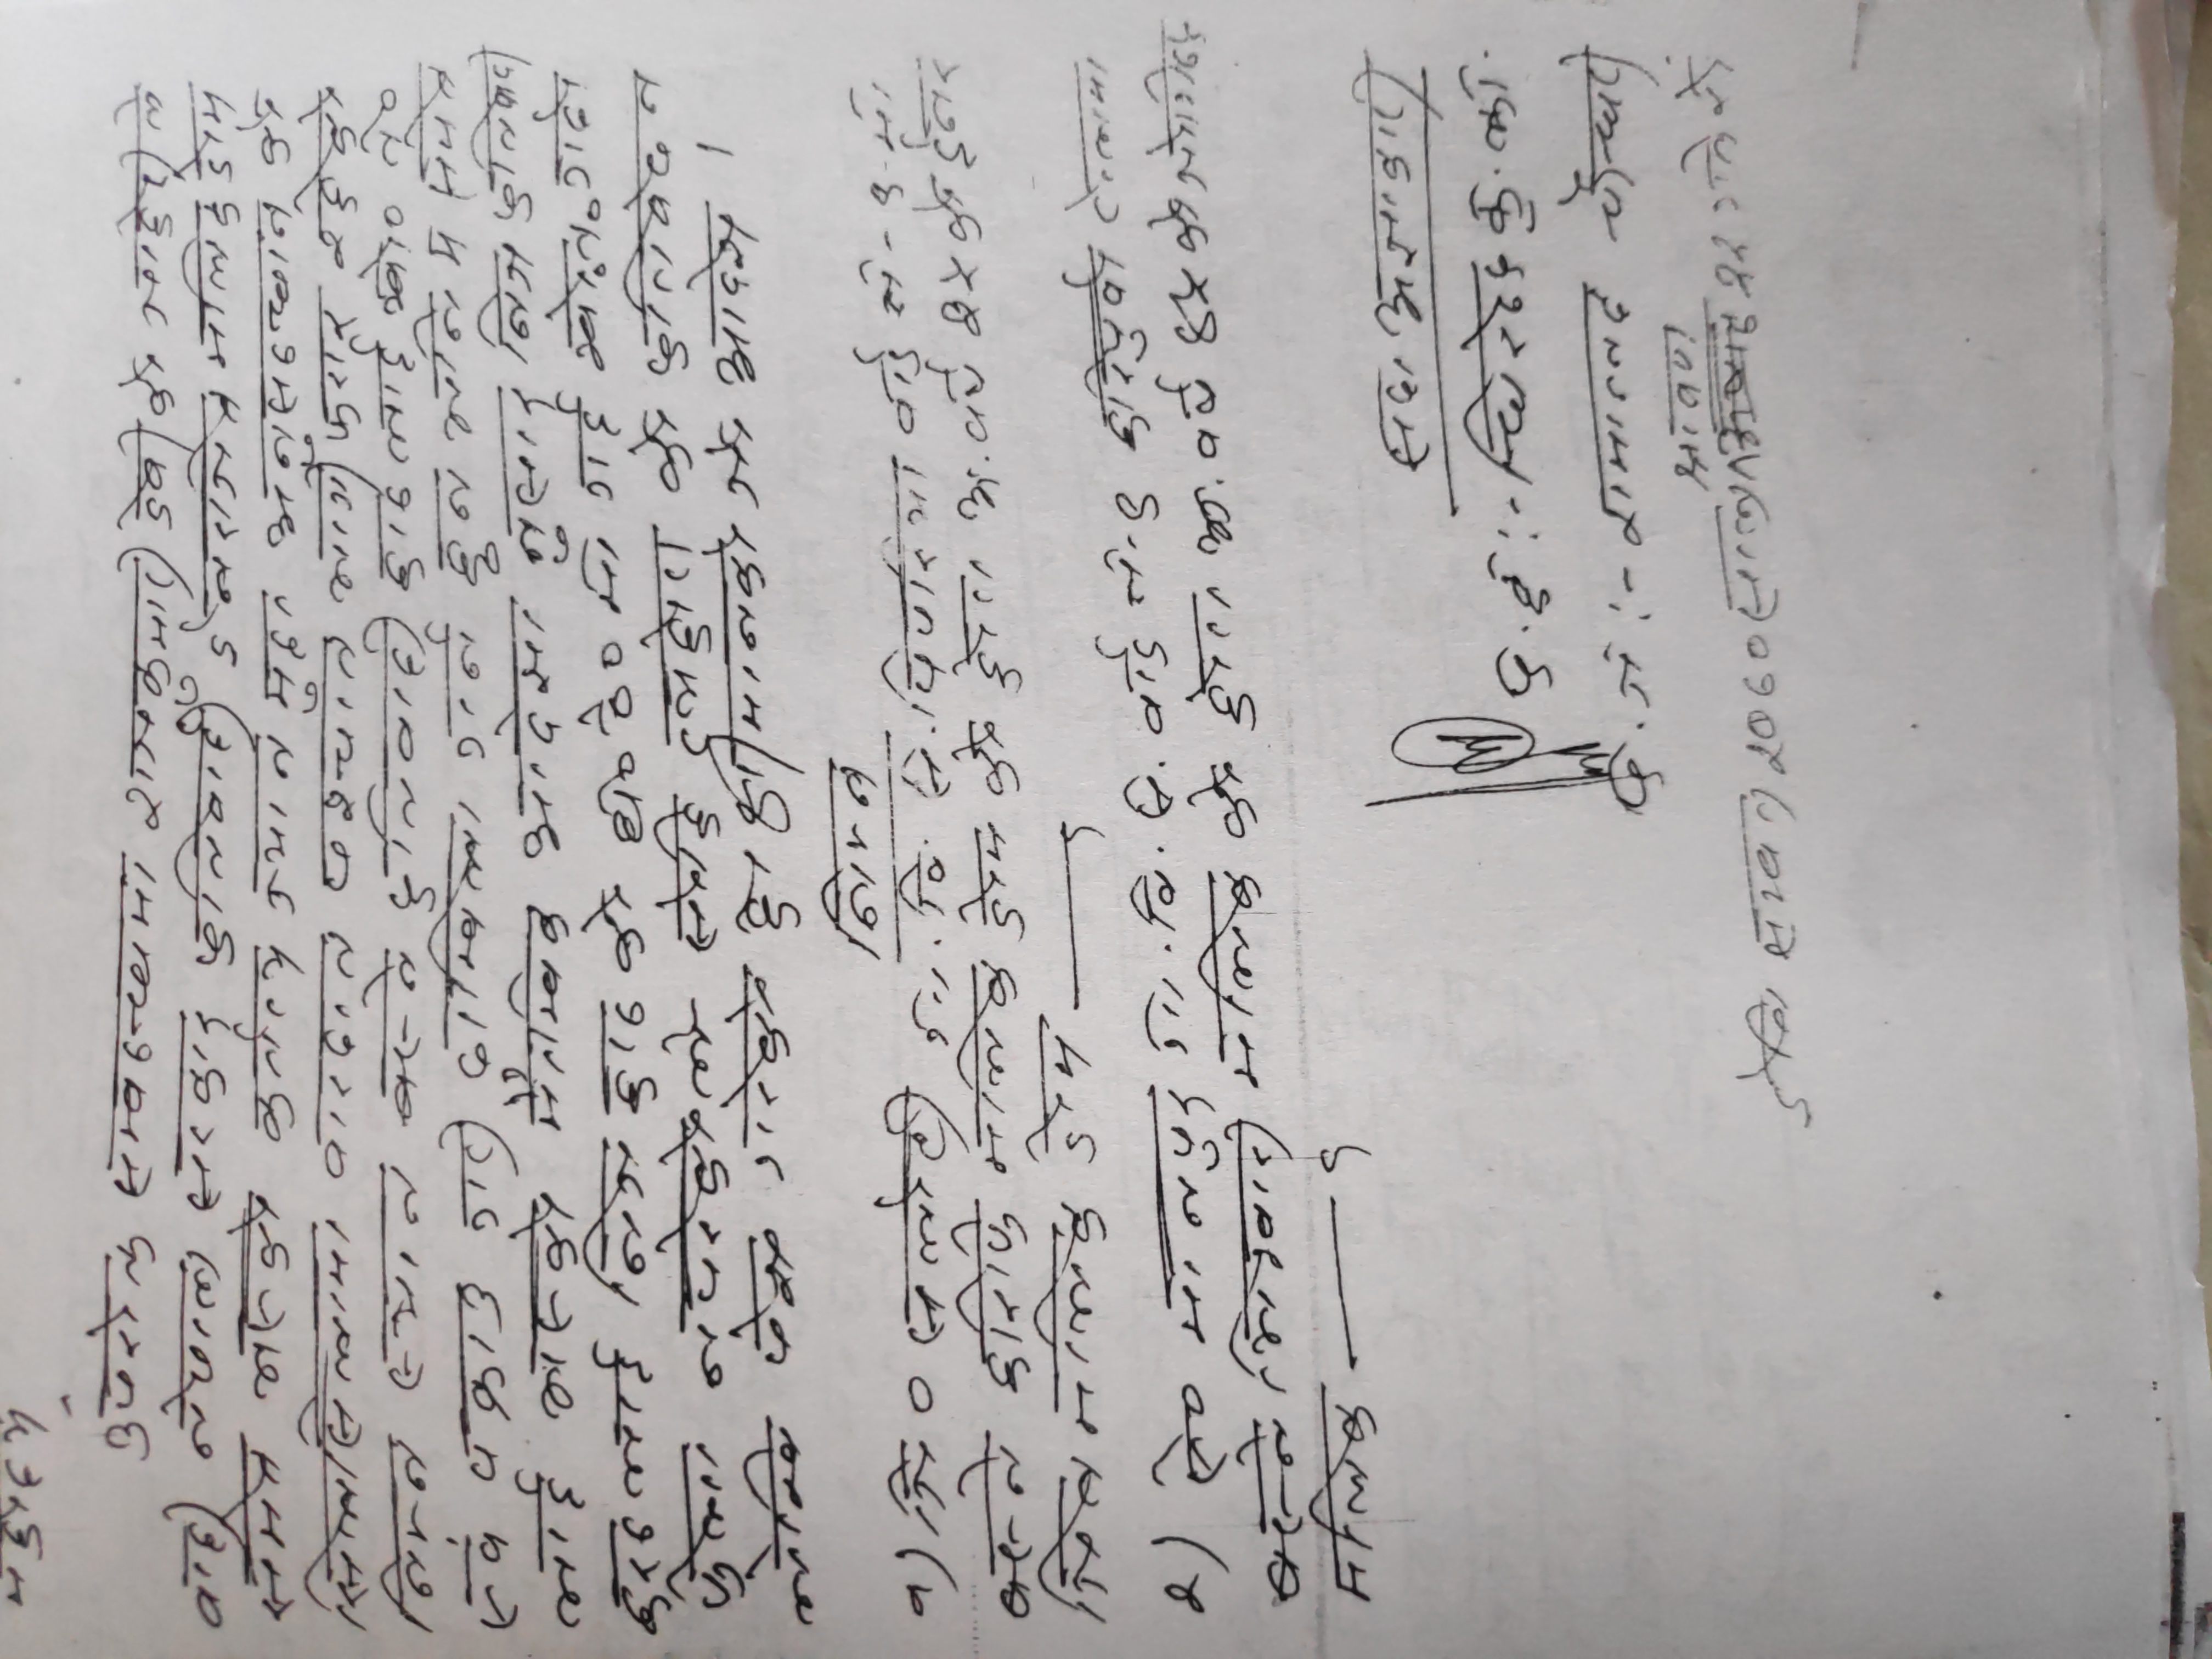 महोदय
उपरोक्त सम्वन्धमा राजकुमारी देवी को जाहेरी ले
वादी नेपाल सरकार प्रतिवादी ईनरजित मलिक डोम
समेत भएको कर्तव्य ज्यान मुद्दा अनुसन्धान को
सिलसिलामा वारदात पश्चात भागी फरार रहेको
निम्न स्थान बस्ने प्रतिवादी हरु लाई खो० त०
एवं पक्राउ गरी दाखिला गर्न हुन भनि म समेत
लाई भएको मौखिक आदेशा नुसार निज प्रतिवादी
हरु लाई निज हरु को घ० ठे० मा गई खो.त. गर्दा
फेला नपरेकोले सोहि व्यहोरा को प्रतिवेदन
लेखि पेश गरेको छु श्रीमानको जो आदेश ।
निम्न
१) जि० सर्लाही गा. वि. स. पिपरिया वार्ड नं - १ मा
बस्ने हरिफे मलिक डोम को छोरा अ. वर्ष २५ को ईनर
जित मलिक डोम — १
२) ऐ० मानपुर गा. वि. स. वार्ड नं. ९ हरिपुर्वा टोलमा
बस्ने मलिक को छोरा अ. वर्ष ४५ को जोगिन्द्र
मलिक — १
सदा अज्ञाकारी
प्र. ह :- धिरेन्द्र कु. का.
प्र. ज :- रामानन्द चौधरी
श्रावण
ईति सम्वत् २०६० साल २२ गते रोज